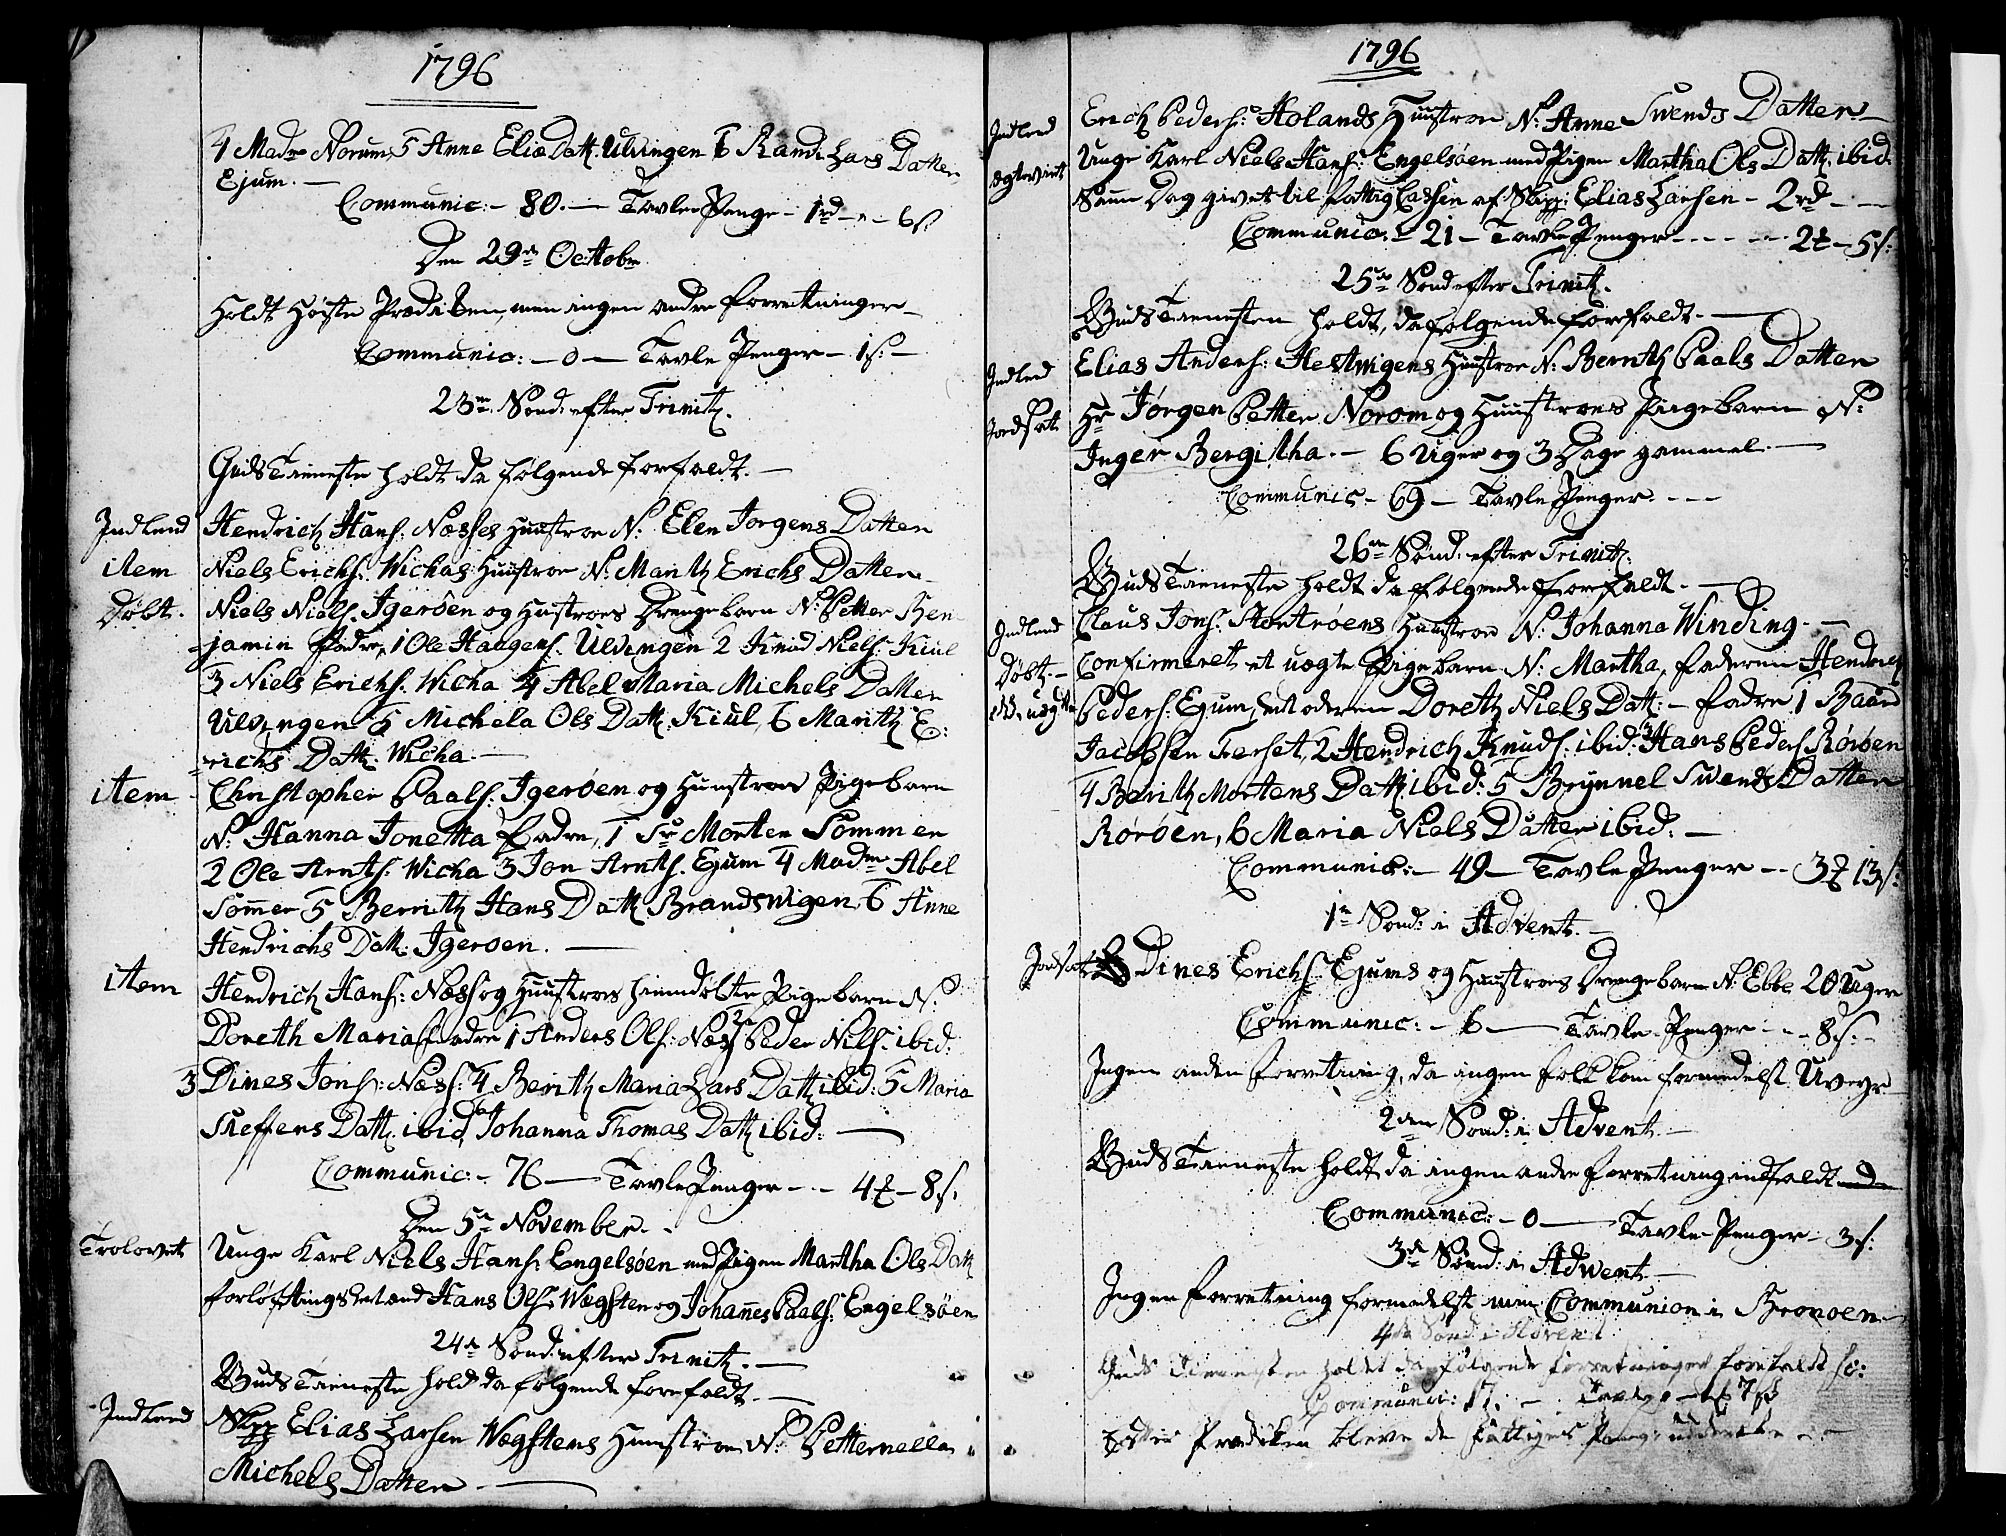 1796
4 Madme Norum, 5 Anne Eliæ Datt. Ulvingen 6 Randi Lars Datter
Ejum. —
Communic: - 80. — Tavle Penge - 1rd - " - 6s
Den 29de Octobr
Holdt Høiste Prædiken, men ingen andre Forretninger -
Communic: - 0 — Tavle Penger - 1s: -
23de Sønd: efter Trinit.
Guds Tieneste holdt da følgende forfaldt. —
Indlend Hendrich Hans: Næsses Huustroe N: Elen Jorgens Datter
item Niels Erichs. Wichas Huustroe N: Marith Erichs Datter
Døbt. Niels Niels. Igerøen og Hustroes Drengebarn N: Petter Ben-
jamin Fadre, 1 Ole Haagens. Ulvingen 2 Knud Niels. Kiul
3 Niels Erichs. Wicha 4 Abel Maria Michels Datter
Ulvingen 5 Michela Ols Datt. Kiul, 6 Marith E:
richs Datt. Wicha. —
item Christopher Paals. Igerøen og Huustroes Pigebarn
N: Hanna Jonetta Fadre, 1 Sr Morten Sommer
2 Ole Arnts: Wicha 3 Jon Arnts. Ejum 4 Madme Abel
Sommer 5 Berrith Hans Datt Brandsvigen 6 Anne
Hendrichs Datt: Igeroen. —
item Hendrich Hans: Næss og Huustroes hiemdøbte Pigebarn N:
Doreth Maria Fadre 1 Anders Ols: Næs 2 Peder Nils. ibid:
3 Dines Jons: Næss: 4 Berith Maria Lars Datt ibid: 5 Maria
Steffens Datt. ibid 6 Johanna Thomas Datt ibid: —
Communic: - 76 — Tavle Penger - - 4 - 8s.
Den 5te November. -
Trolovet Unge Karl Niels Hans: Engelsøen med Pigen Martha Ols Datt
forløftningsmænd Hans Ols: Wægsten og Johanes Paals: Engelsøen
24de Sønd: efter Trinit. —
Guds Tieneste holdt da følgende forefaldt. —
Indlend Skpp Elias Larsen Wægstens Huustroe N: Petternella
Michels Datter —
1796
Indlend Erich Peders: Holands Huustroe N: Anne Svends Datter
ægteviet Unge Karl Niels Hans: Engelsøen med Pigen Martha Ols Datt. ibid
Samme Dag givet til Fattig Cassen af Skpp: Elias Larsen - 2rd - —
Communic: - 21 - Tavle Penger - - - - - 2 - 5s:
25de Sønd efter Trinit.
Guds Tienesten holdt, da følgende forefaldt. —
Indled Elias Anders: Hestvigens Huustroe N: Berrith Paals Datter
Jordsat Hr Jørgen Petter Norom og Huustroes Pigebarn N:
Inger Bergitha. - 6 Uger og 3 Dage gammel —
Communic - 69 — Tavle Penger. - - -
26de Sønd: efter Trinit:
Guds Tieneste holdt da følgende forfaldt. —
Indlend Claus Jons. Stortrøens Huustroe N: Johanna Winding. —
Døbt. - Confirmeret et uægte Pigebarn N: Martha, Faderen Hendrich
uægte Peders: Ejum, Moderen Doreth Niels Datt: - Fadre 1 Baard
Jacobsen Forset, 2 Hendrich Knuds. ibid: 3 Hans Peders Rørøen
4 Berith Mortens Datt. ibid: 5 Brynnel Svends Datter
Rørøen, 6 Maria Niels Datter ibid: —
Communic: - 49 — Tavle Penger - - 3 13s:
1te Sønd: i Advent. —
Jordsat Dines Erichs. Ejums og Huustroes Drengebarn N: Ebbe 20 Uger
Communic: - 6 — Tavle Penger - - - 8s: -
Ingen anden Forretning, da ingen Folk kom formedelst Uveyr
2den Sønd: i Advent —
Guds Tieneste holdt da ingen andre forretning indfaldt
Communic: - 0 — Tavle-Penger - 3s.
3de Sønd: i Advent —
Ingen Forretning formedelst min Communion i Bronoen
4de Sønd i Advent
Guds Tienesten holdt da følgende forretninger forefaldt
Communic: 17. —
Efter Prædiken bleve de fattiges Penge uddeelte